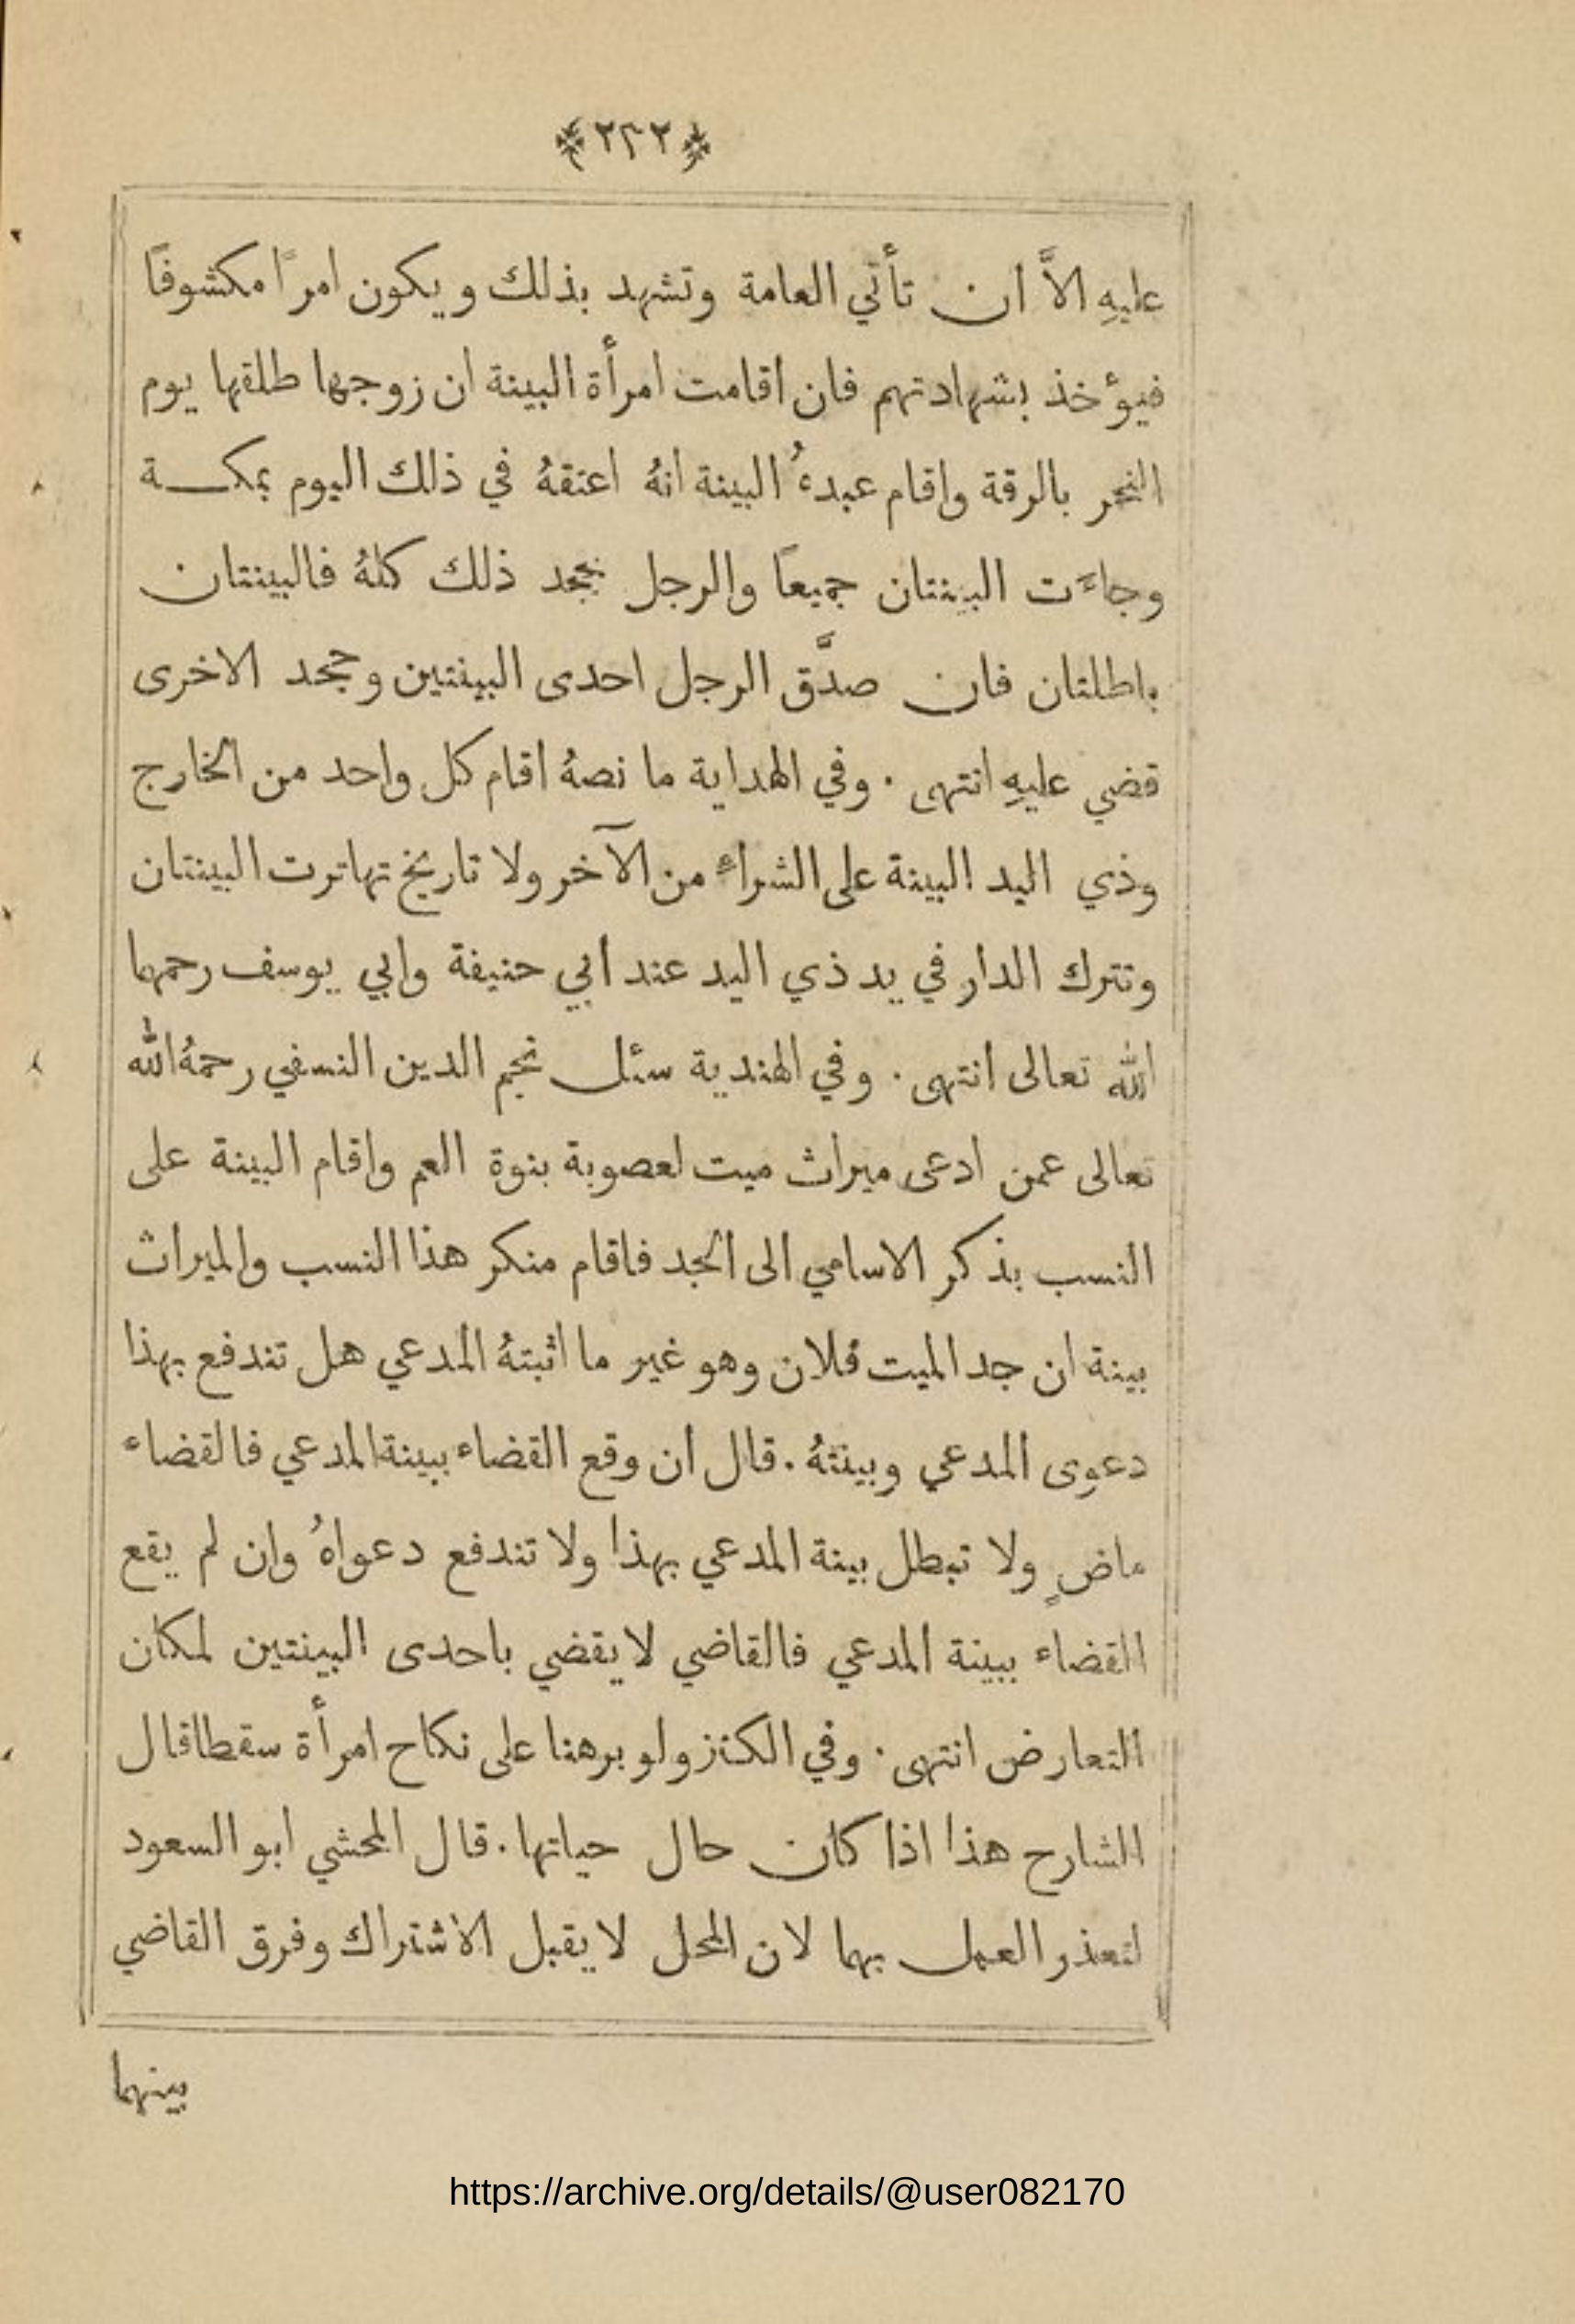 ﴿٢٣٢﴾
عليهِ الاَّ ان تأتي العامة وتشهد بذلك ويكون امراً مكشوفاً
فيؤخذ بشهادتهم فان اقامت امرأة البينة ان زوجها طلقها يوم
النحر بالرقة واقام عبدهُ البينة انهُ اعتقهُ في ذلك اليوم بمكة
وجاءَت البينتان جميعاً والرجل يجحد ذلك كلهُ فالبينتان
باطلتان فان صدَّق الرجل احدى البينتين وجحد الاخرى
قضي عليهِ انتهى . وفي الهداية ما نصهُ اقام كل واحد من الخارج
وذي اليد البينة على الشراءِ من الآخر ولا تاريخ تهاترت البينتان
وتترك الدار في يد ذي اليد عند ابي حنيفة وابي يوسف رحمهما
الله تعالى انتهى . وفي الهندية سئل نجم الدين النسفي رحمهُ الله
تعالى عمن ادعى ميراث ميت لعصوبة بنوة العم واقام البينة على
النسب بذكر الاسامي الى الجد فاقام منكر هذا النسب والميراث
بينة ان جد الميت فلان وهو غير ما اثبتهُ المدعي هل تندفع بهذا
دعوى المدعي وبينتهُ . قال ان وقع القضاء ببينة المدعي فالقضاء
ماضٍ ولا تبطل بينة المدعي بهذا ولا تندفع دعواهُ وان لم يقع
القضاء ببينة المدعي فالقاضي لا يقضي باحدى البينتين لمكان
التعارض انتهى . وفي الكنز ولو برهنا على نكاح امرأة سقطا قال
الشارح هذا اذا كان حال حياتها . قال المحشي ابو السعود
لتعذر العمل بهما لان المحل لا يقبل الاشتراك وفرق القاضي
بينهما
https://archive.org/details/@user082170